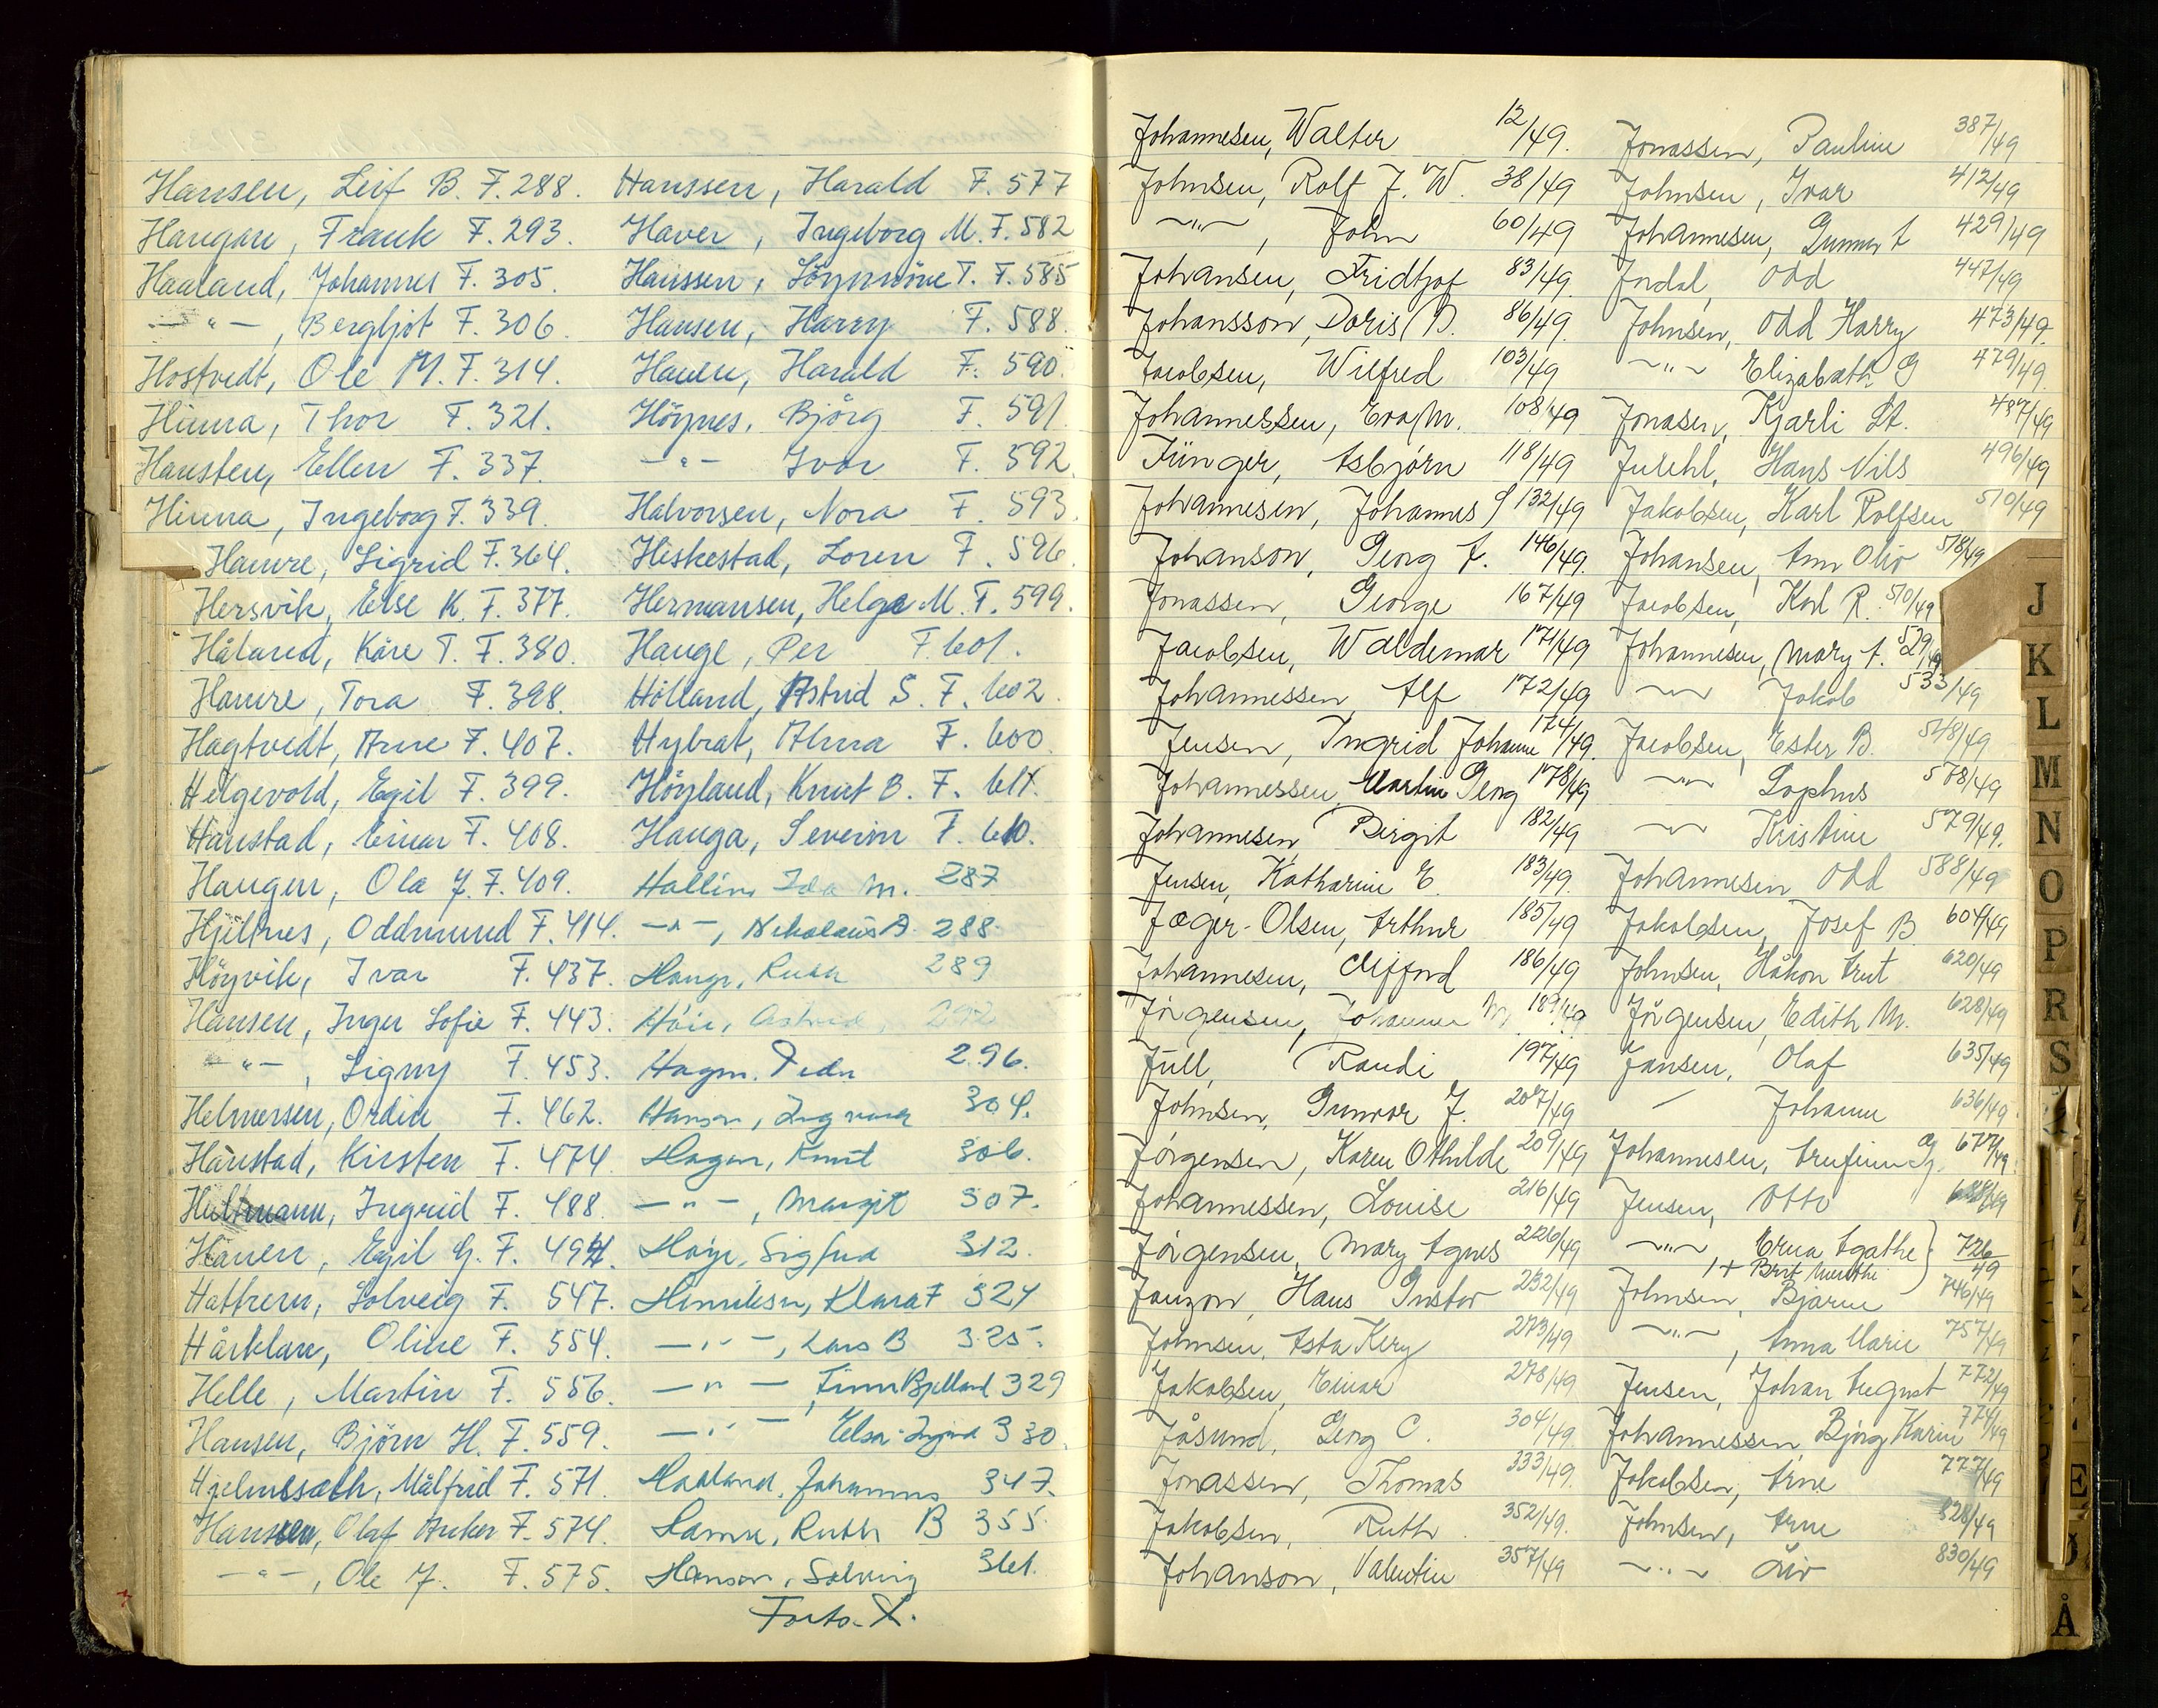 Hansen, Leif B. F. 288.
Haugan, Frank F. 293.
Haaland, Johannes F. 305.
—"—, Bergljot F. 306.
Hostvedt, Ole M. F. 314.
Hinna, Thor F. 321.
Hansten, Ellen F. 337.
Hinna, Ingeborg F. 339.
Hamre, Sigrid F. 364.
Hersvik, Else K. F. 377.
Håland, Kåre T. F. 380.
Hamre, Tora F. 398.
Hagtvedt, Arne F. 407.
Helgevold, Egil F. 399.
Hanstad, Einar F. 408.
Haugen, Ola J. F. 409.
Hjellnes, Oddmund F. 414.
Höyvik, Ivar F. 437.
Hansen, Inger Sofie F. 443.
—"—, Signy F. 453.
Helmersen, Ordin F. 462.
Hanstad, Kirsten F. 474.
Ingrid F. 488.
Hauen, Egil G. F. 494.
Hattrem, Solveig F. 547.
Oline F. 554.
Helle, Martin F. 556.
Hansen, Björn H. F. 559.
Hjelmsæth, Målfrid F. 571.
Hanssen, Olaf Anker F. 574.
—"—, Ole J. F. 575.
Hanssen, Harald F. 577
Haver, Ingeborg M. F. 582
Hanssen, Synnöve T. F. 585
Hansen, Harry F. 588.
Hauen, Harald F. 590.
Höynes, Björg F. 591.
—"— Ivar F. 592.
Halvorsen, Nora F. 593.
Heskestad, Soren F. 596.
Hermansen, Helga M. F. 599.
Hauge, Per F. 601.
Hölland, Astrid S. F. 602.
Alma F. 600.
Höyland, Knut B. F. 611.
Hauga, Severin F. 610.
Hallin, Ida M. 287
—"—, Nikolaus A. 288.
Hauge, Ruth 289
Astrid, 292
Hagen, Peder 296.
Hansen, Ingvar 304.
Hagen, Knut 306.
—"—, Margit 307.
Høye, Sigfrid 312.
Henriksen, Klara F 324
—"—, Lars B 325.
—"—, Finn Bjelland 329
—"— Elsa Ingrid 330.
Haaland, Johannes 347.
Hamre, Ruth B 355.
Hanson, Solveig 361.
Forts. X.
Johannesen, Walter 12/49.
Johnsen, Rolf J. W. 38/49
—"—, John 60/49
Johansen, Fridtjof 83/49.
Johansson, Doris B. 86/49.
Jacobsen, Wilfred 103/49
Johannessen, Eva M. 108/49
Jünger, Asbjörn 118/49
Johannesen, Johannes S 132/49
Johanson, Georg A. 146/49.
Jonassen, George 167/49
Jacobsen, Waldemar 171/49
Johannessen Alf 172/49
Jensen, Ingrid Johanne 174/49.
Johannessen, Martin Georg 178/49
Johannesen, Birgit 182/49
Jensen, Katharine E. 183/49.
Jæger-Olsen, Arthur 185/49
Johannesen, Clifford 186/49
Jörgensen, Johannes M. 189/49
Jüll, Randi 197/49
Johnsen, Gunvor J. 207/49
Jörgensen, Karen Othilde 209/49
Johannessen, Louise 216/49
Jörgensen, Mary Agnes 226/49
Janzon, Hans Gustav 232/49
Johnsen, Asta Kery 273/49
Jakobsen, Einar 278/49
Jåsund, Georg C. 304/49.
Jonassen, Thomas 333/49.
Jakobsen, Ruth 352/49.
Johanson, Valentin 357/49
Jonassen, Pauline 387/49
Johnsen, Ivar 412/49
Johannesen, Gunnar A 429/49
Jndal, Odd 447/49
Johnsen, Odd Harry 473/49.
—"— Elizabeth G 479/49.
Jonasen, Kjarli St. 487/49
Hans Nils 496/49
Jakobsen, Karl Rolfsen 510/49
Johansen, Ann Oliv 518/49
Jacobsen, Karl R. 510/49
Johannesen, Mary A. 529/49
—"— Jakob 533/49
Jacobsen, Ester B. 548/49
—"— Sophus 578/49
—"— Kristine 579/49.
Johannesen Odd 588/49
Jakobsen, Josef B. 604/49
Johnsen, Håkon Arnt 620/49
Jörgensen, Edith M. 628/49
Jansen, Olaf 635/49
— Johanne 636/49.
Johannesen, G. 677/49
Jensen, Otto
—"—, Erna Agathe } 726/49
Johnsen, Bjarne 746/49
—"—, Anna Marie 757/49
Jensen, Johan August 772/49
Johannessen Bjørg Karin 774/49
Jakobsen, Arne 777/49
Johnsen, Arne 828/49
—"— Liv 830/49
J
K
L
M
N
O
P
R
S
E
Å